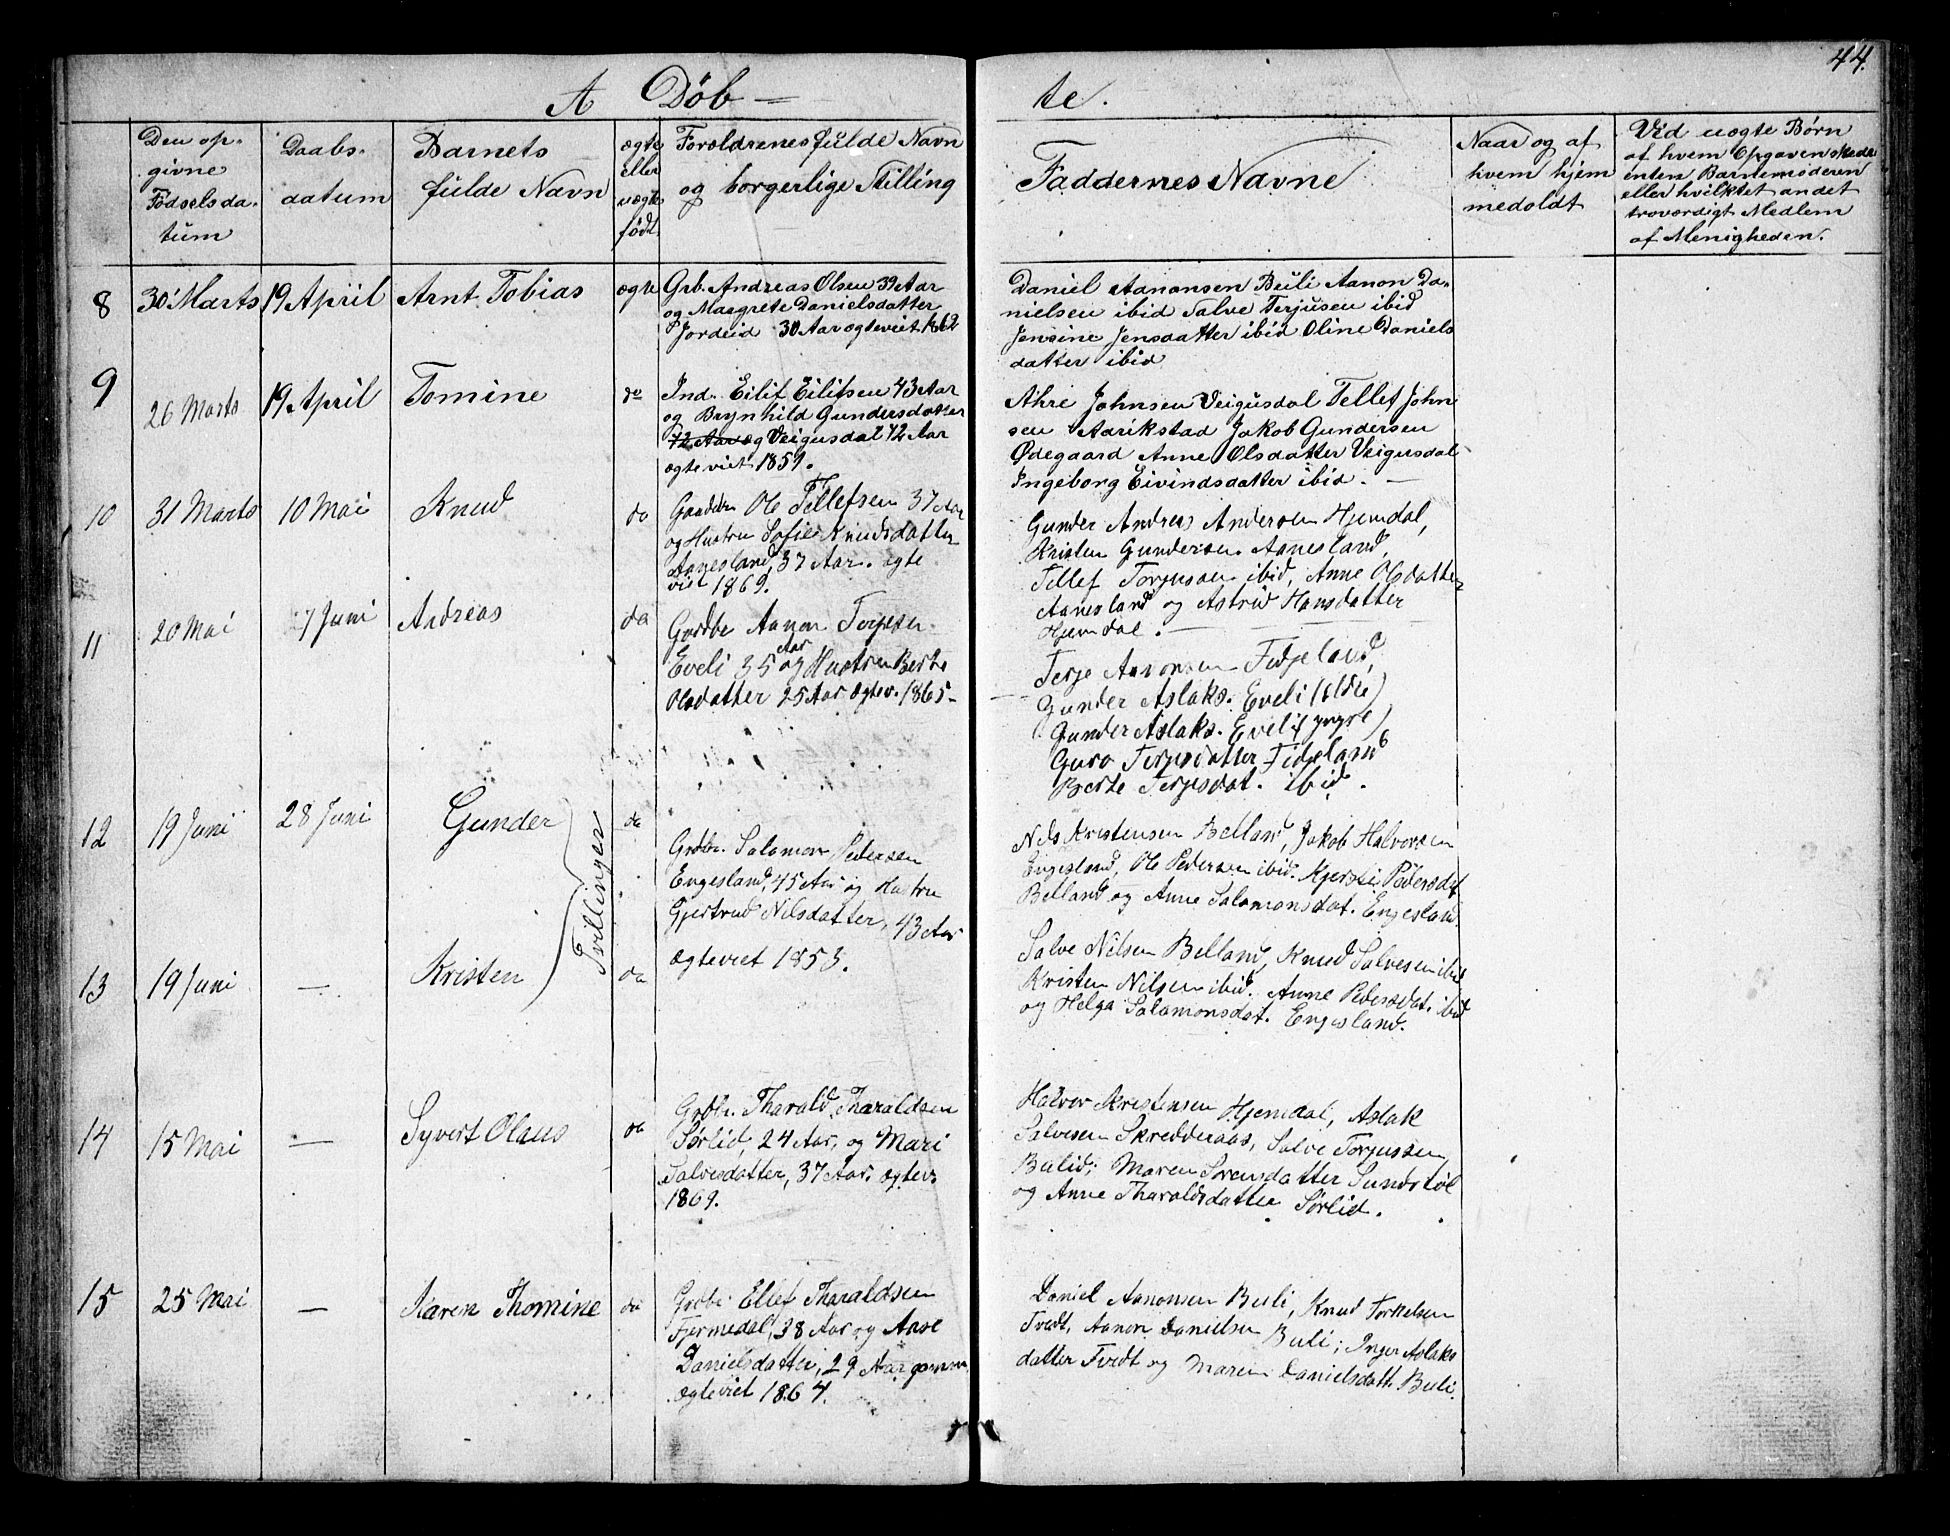 44.
A Døb – te.
Den op-
givne
Fødselsda-
tum
Daabs-
datum
Barnets
fulde Navn
ægte
eller
uægte
født
Forældrenes fulde Navn
og borgerlige Stilling
Faddernes Navne
Naar og af
hvem hjem
medøbt
Vid uægte Børn
af hvem Opgaven skeder
enten Barnemoderen
eller hvilket andet
troværdigt Medlem
af Menigheden.
8 30 Marts 19 April Arnt Tobias ægte
Grb. Andreas Olsen 39 Aar
og Maegrete Danielsdatter
Jordeid 30 Aar ægteviet 1862
Daniel Aanonsen Buli Aanon Da-
nielsen ibid Salve Terjusen ibid
Jensine Jensdatter ibid Oline Daniels
datter ibid
9 26 Marts 19 April Tomine do
Ind. Eilif Eilifsen 43 Aar
og Brynhild Gundersdatter
42 Aar og Veigusdal 42 Aar
ægteviet 1859.
Ahre Johnsen Veigusdal Tellef John
sen Aarikstad Jakob Gundersen
Ødegaard Anne Olsdatter Veigusdal
Ingeborg Eivindsdatter ibid. –
10 31 Marts 10 Mai Knud do
Gaardbr. Ole Tellefsen 37 Aar
og Hustru Sofie Knudsdatter
Aanesland, 37 Aar. ægte
viet 1869.
Gunder Andreas Andersen Hjemdal,
Kristen Gundersen Aanesland,
Tellef Torjusen ibid, Anne Olsdatter
Aanesland og Astrid Hansdatter
Hjemdal.
11 20 Mai 7 Juni Andreas do
Gordbr Aanon Terjesen
Eveli 35 Aar og Hustru Berte
Olsdatter 25 Aar Ægtev. 1865 –
Terje Aanonsen Fidjeland,
Gunder Aslaks. Eveli (eldre)
Gunder Aslaks. Eveli (yngre)
Guro Terjesdatter Fidjeland
Berte Terjesdat. ibid.
12 19 Juni 28 Juni Gunder do
Tvillinger
Grdbr. Salamon Pedersen
Engesland, 45 Aar og Hustru
Gjertrud Nilsdatter, 43 Aar
Ægteviet 1853.
Nils Kristensen Belland, Jakob Halvorsen
Engesland, Ole Pedersen ibid. Kjersti Pedersdat.
Belland og Anne Salamonsdat. Engesland.
13 19 Juni – Kristen do
Salve Nilsen Belland, Knud Salvesen ibid
Kristen Nilsen ibid. Anne Pedersdat. ibid
og Helga Salamonsdat. Engesland.
14 15 Mai – Syvert Olaus do
Grdbr. Tharald Tharaldsen
Sørlid, 24 Aar, og Mari
Salvesdatter, 37 Aar. ægtev.
1869.
Halvor Kristensen Hjemdal, Aslak
Salvesen Skredderaas, Salve Torjussen
Bulid; Maren Sørensdatter Sundstøl
og Anne Tharaldsdatter Sørlid.
15 25 Mai – Karen Thomine do
Grdbr. Ellef Tharaldsen
Fjermedal, 38 Aar og Aase
Danielsdatter, 29 Aar gammel
ægteviet 1864.
Daniel Aanonsen Buli, Knud Torkelsen
Tvedt, Aanon Danielsen Buli; Inger Aslaks
datter Tvedt og Maren Danielsdatt. Buli.